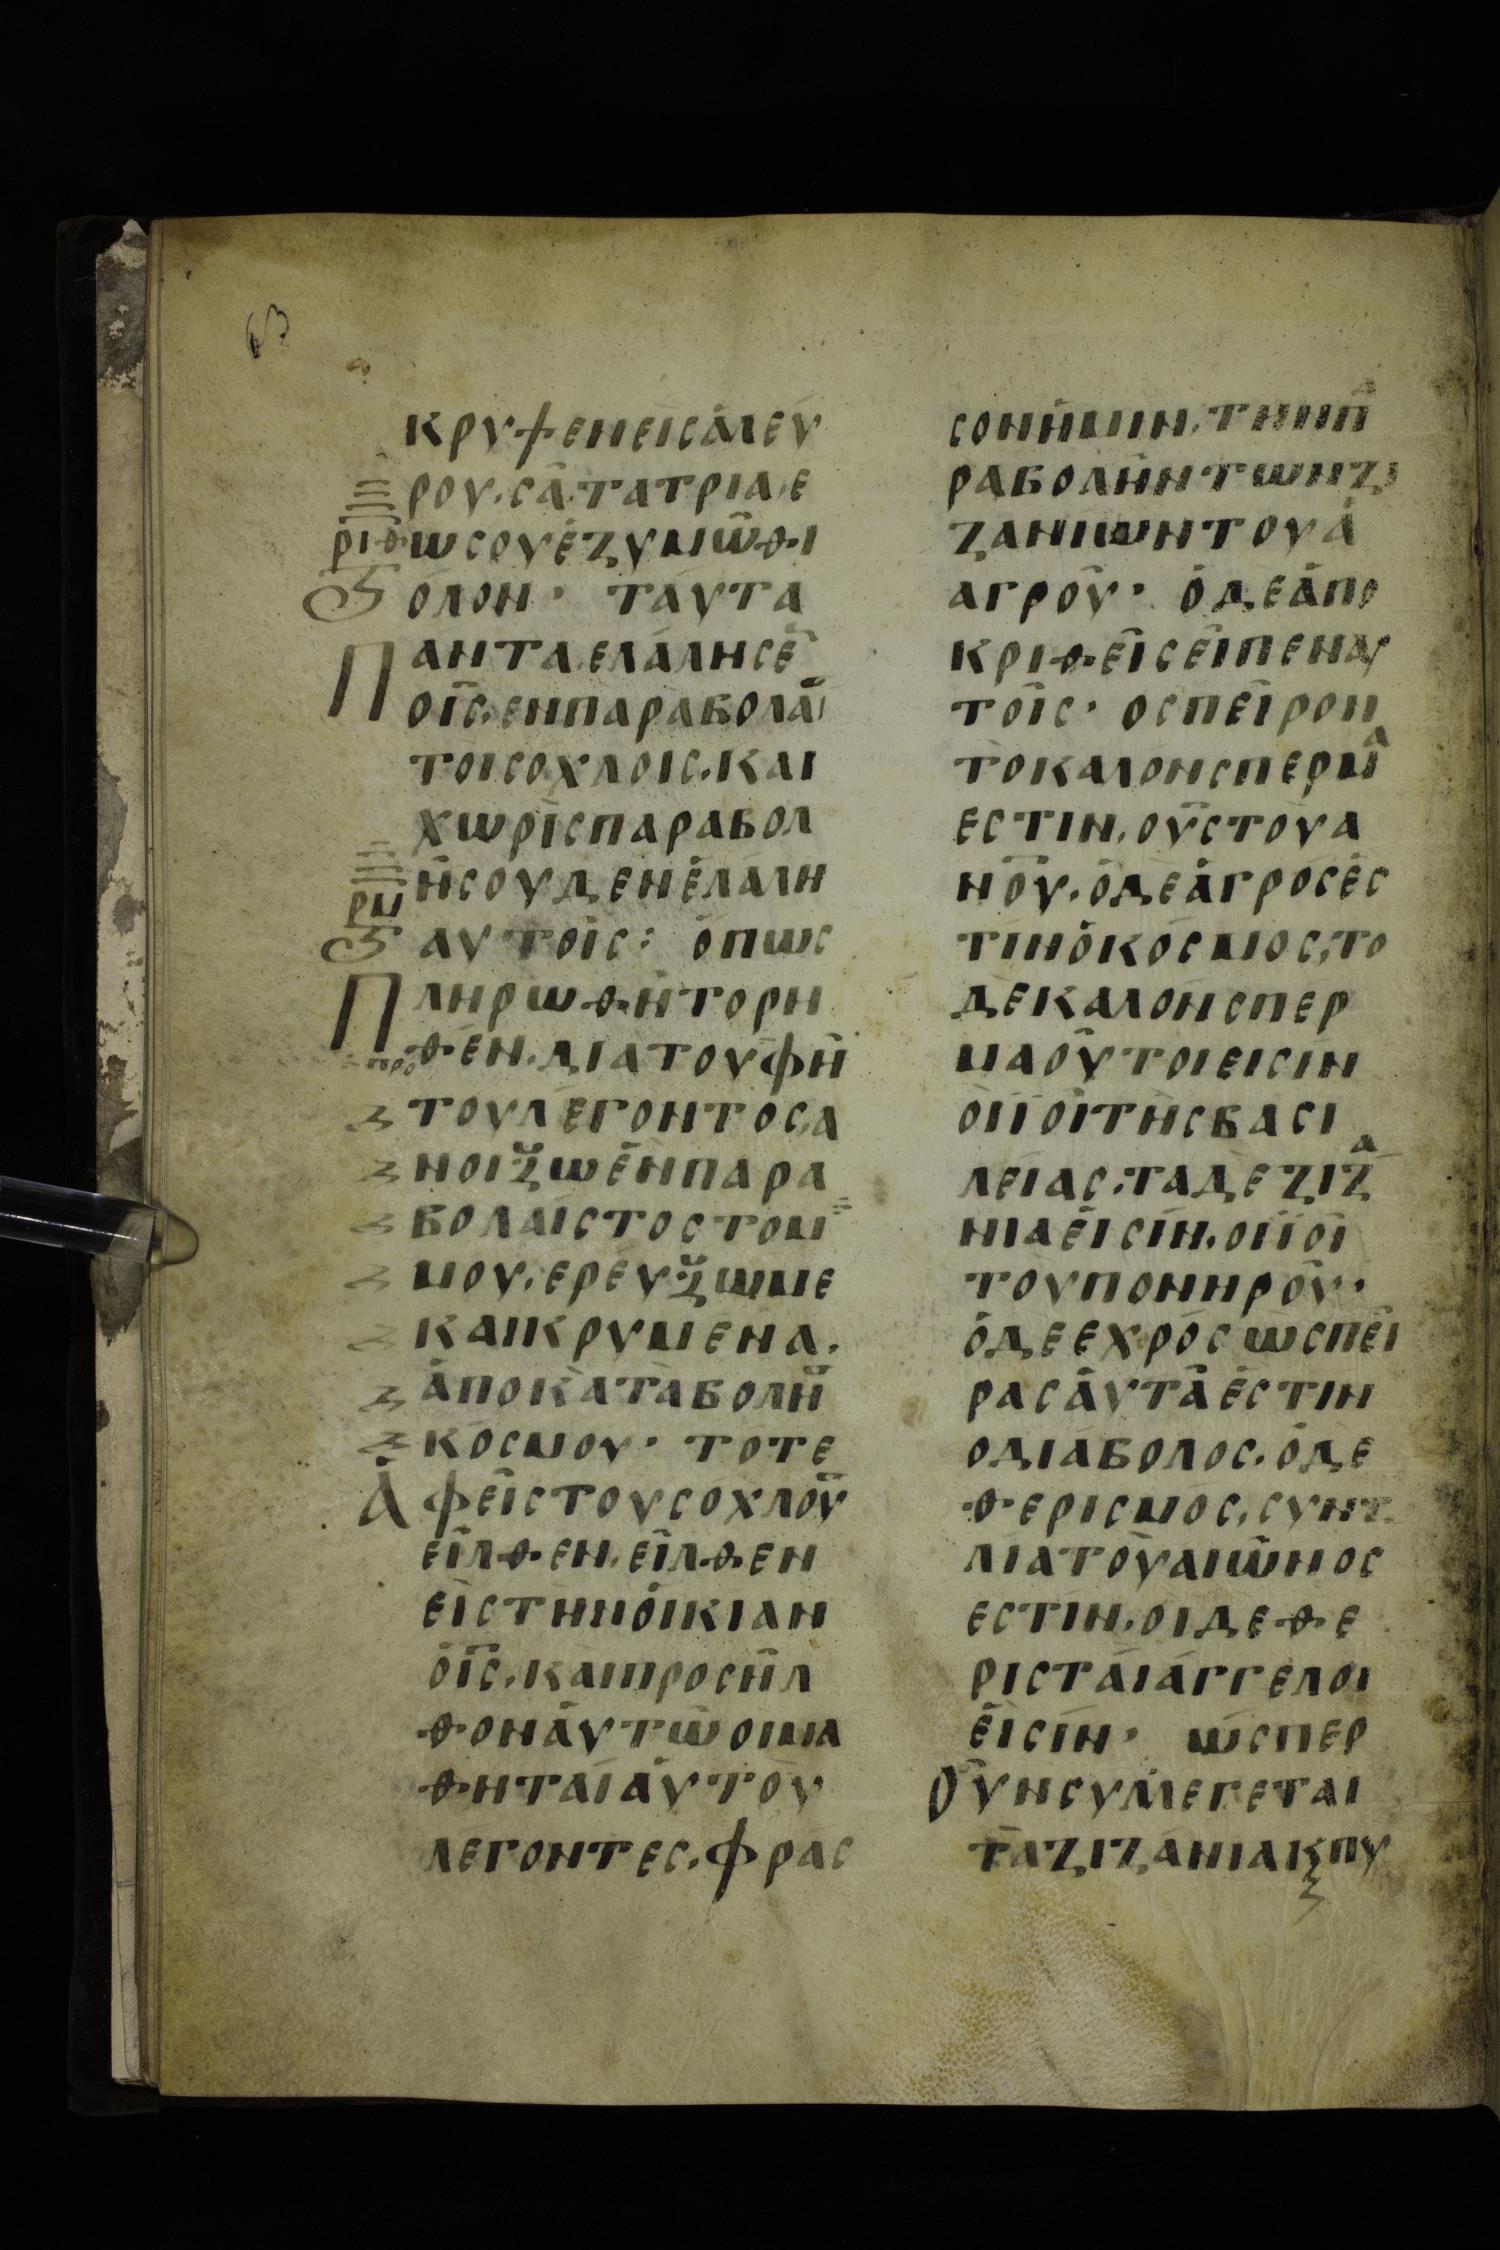 63
κρυφενεἰσἀλεύ
ρου. σᾶ. τατρία, ε
ριθ ωσουἐζυμῶθι
όλον· ταύτα
Παντα. ελάλησἐ
οῑσ. ενπαραβολᾶι
τοισοχλοισ. και
χωρὶσπαραβολ
ῆσουδενἐλάλη
ρμ
αυτοῖσ: ὁπωσ
Πληρωθῆτορη
θέν. διατουφῆ
προ
τουλέγοντοσ, α
νοιξωἐνπαρα
βολαίστοστομ
μου. ερεύξωμε
καικρυμενα.
ἀποκὰταβολῆ
κόσμου· τοτε
Ἀφεῖστουσοχλοῦ
εῖλθεν. εῖλθεν
εἰστηνὁικίαν
ὁῑσ. καιπροσῆλ
θονἀυτῶοιμα
θηταίἀυτοῦ
λεγοντεσ. φράσ
σονἡμιν. τηνπ̄α
ραβολῆντωνζι
ζανίωντουἀ
αγροῦ· ὁδεἀπο
κριθεῖσεῖπεναυ
τοῖσ· οσπεῖρον
τὸκαλονσπερμα
εστιν. οῦστοῦα
νοῦ. ὁδεἀγρόσἐσ
τινὁκόσμοσ, το
δεκαλόνσπερ
μαοῦτοιεισιν
ὁιῑοῑτῆσβασι
λείασ. ταδεζιζα
νιαἐισίν. οιῑοῑ
τουπονηροῦ·
ὁδεεχρόσωσπεῖ
ρασἀυτᾶἐστιν
οδιάβολοσ. ὁδε
θερισμόσ, συντ
λιατοῦαιῶνοσ
εστίν. οιδεθε
ρισταίἀγγελοι
ἐισίν· ὡσπερ
Οῦνσυλλέγεται
ταζιζάνιακ̣πυ